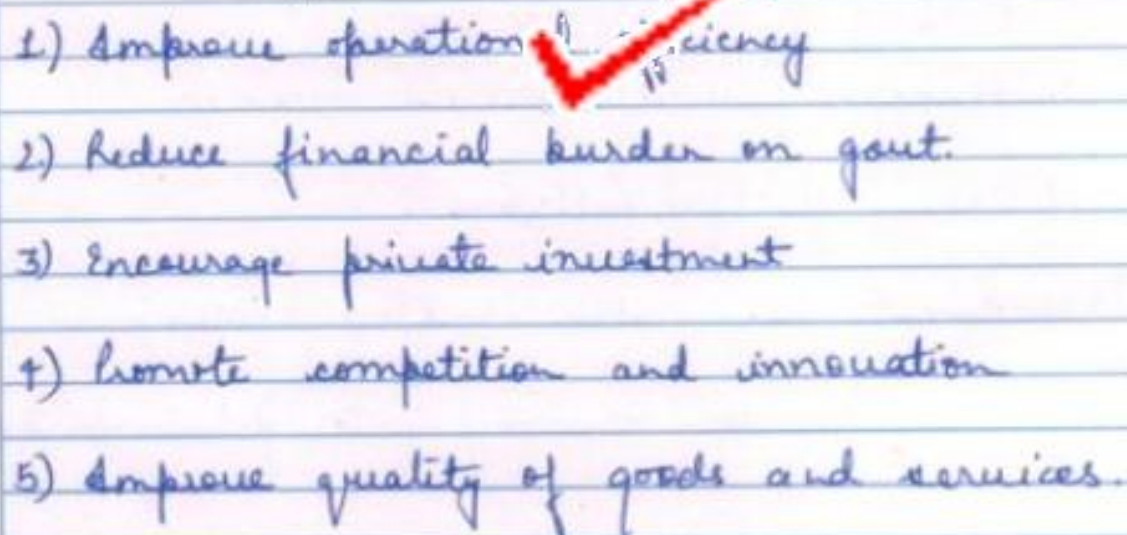 1) Improve operation ciency
2) Reduce financial burden on govt.
3) Encourage private investment
4) Promote competition and innovation
5) Improve quality of goods and services.